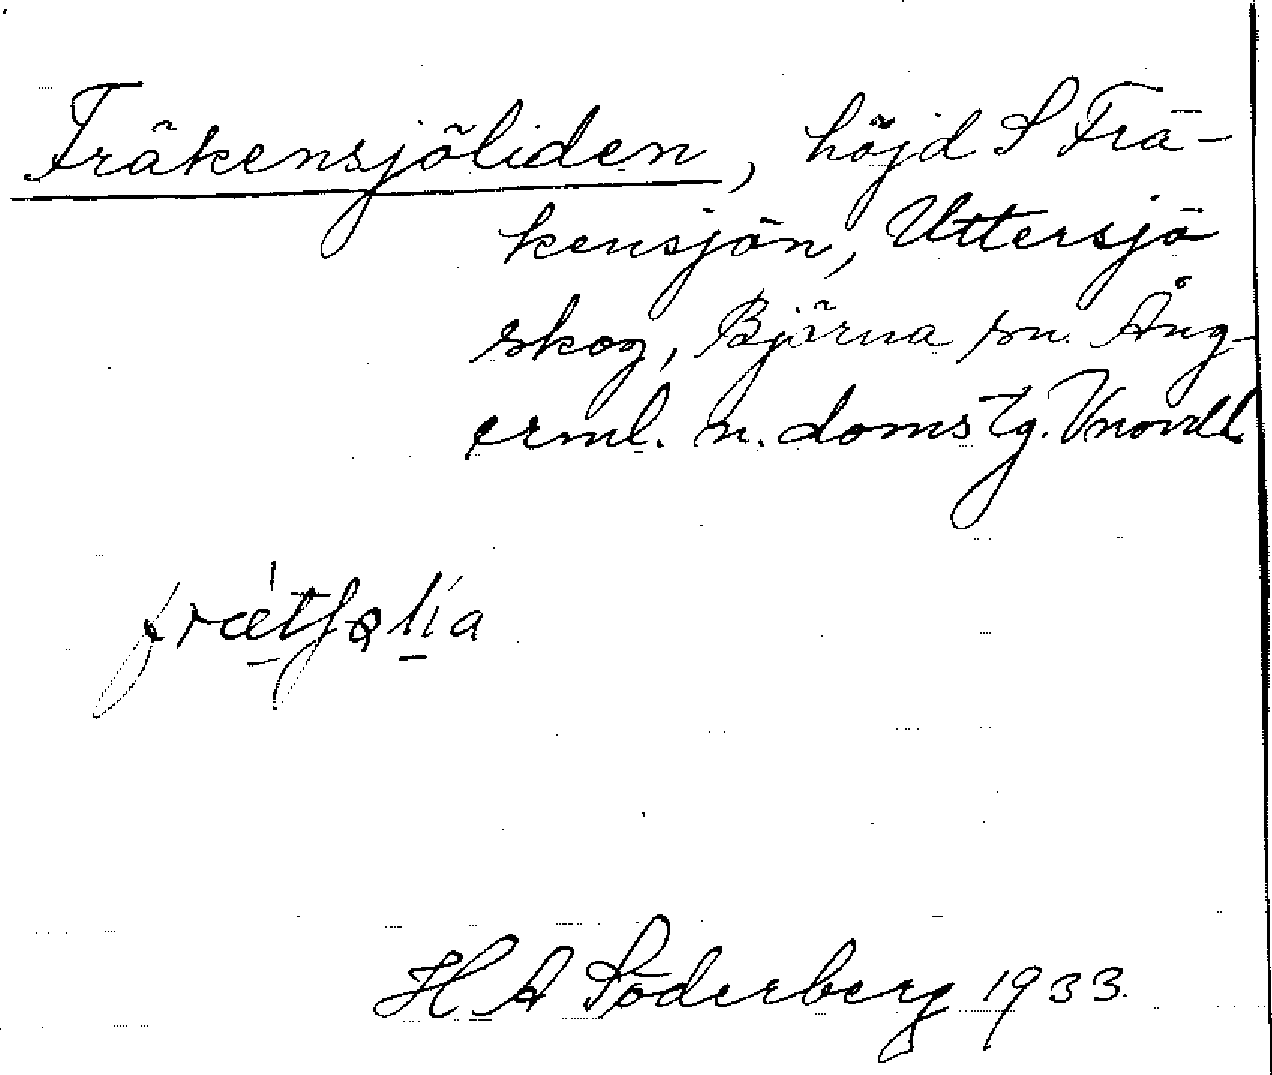 Fräkensjöliden, höjd S Frä-
kensjön, Uttersjö
skog, Björna sn. Ång-
erml. n. doms tg. Vnorrl.
H A Söderberg 1933.